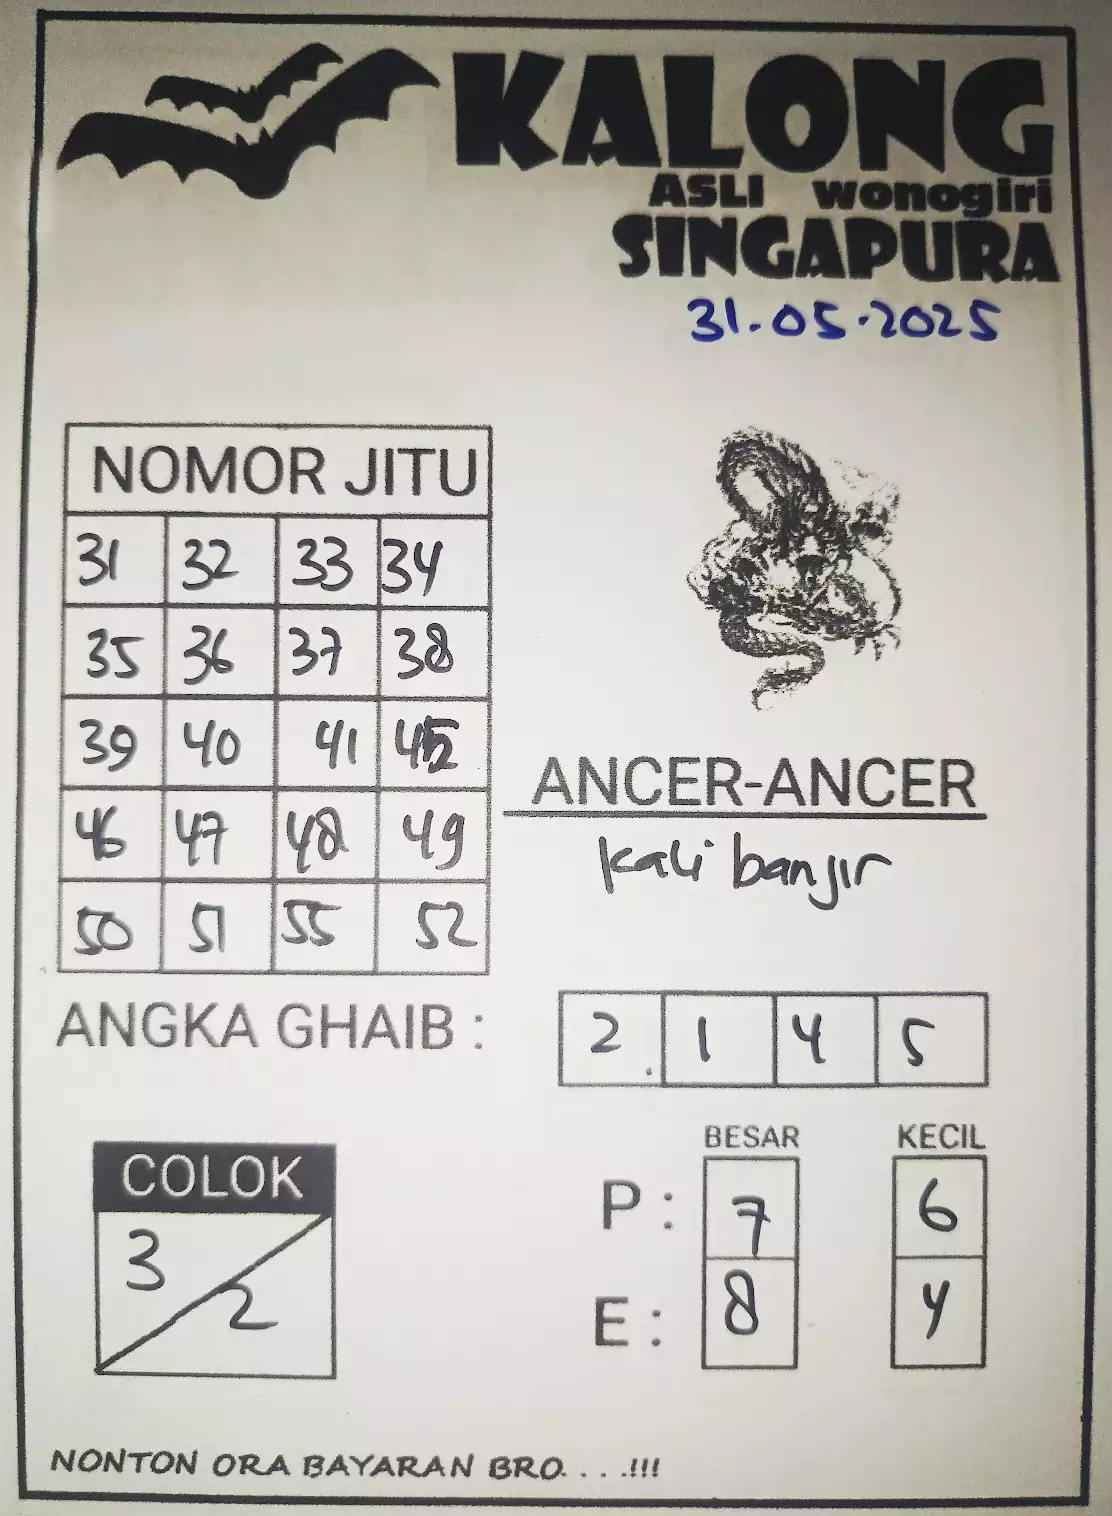 KALONG
ASLI wonogiri
SINGAPURA
31.05.2025
NOMOR JITU
31 32 33 34
35 36 37 38
39 40 41 45
46 47 48 49
50 51 55 52
ANCER-ANCER
kali banjir
ANGKA GHAIB : 2. 1 4 5
COLOK
3 2
BESAR KECIL
P : 7 6
E : 8 4
NONTON ORA BAYARAN BRO. . . .!!!